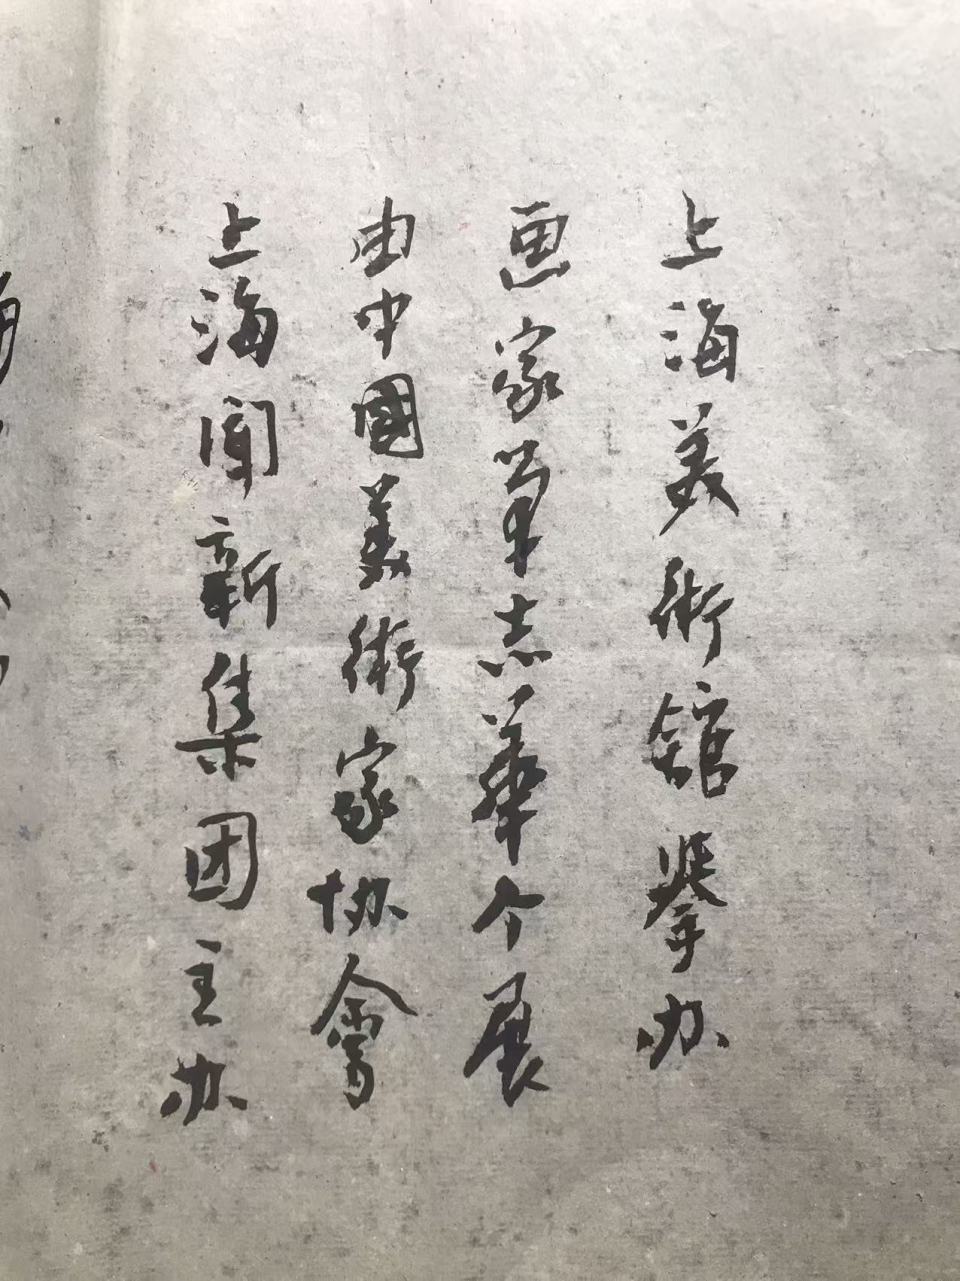 上海美術舘举办
画家單志華个展
由中國美術家协會
上海闻新集团主办